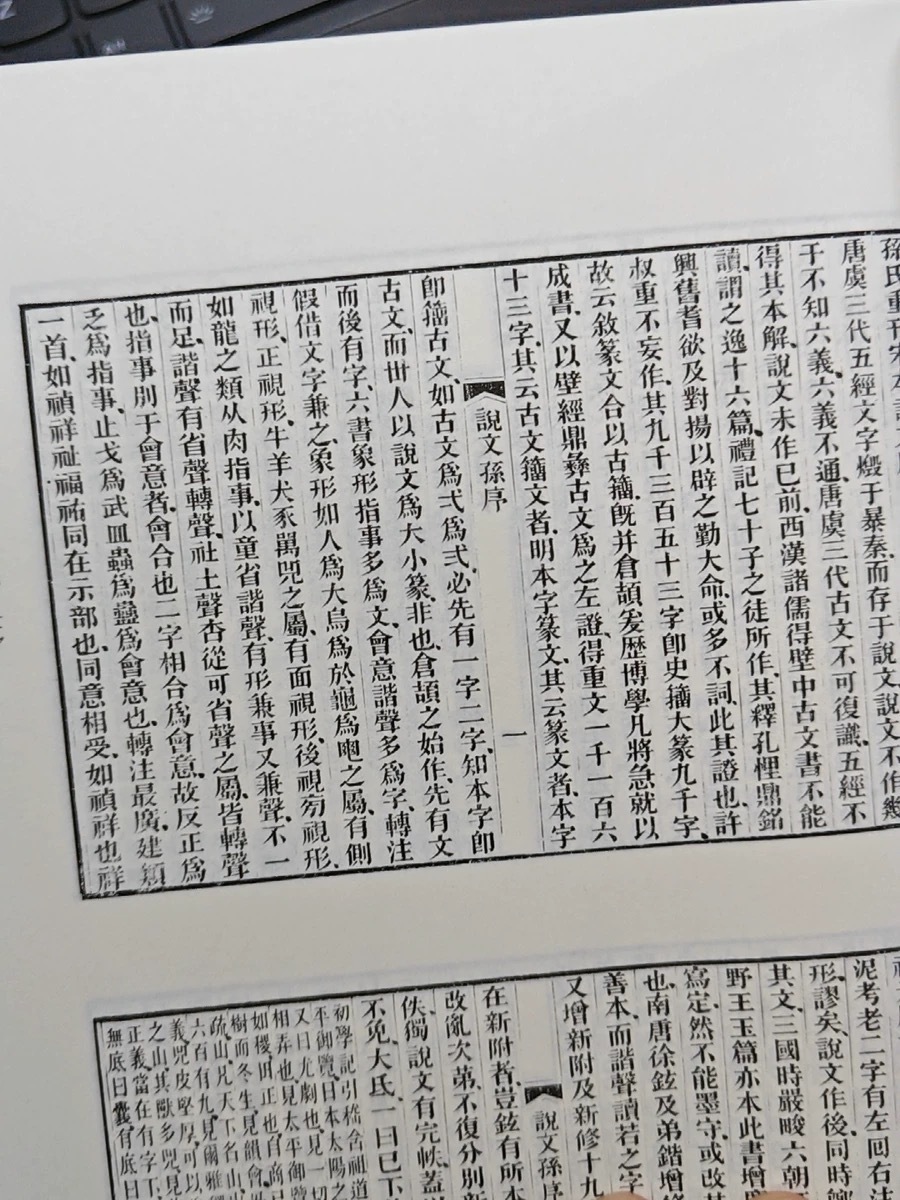 唐虞三代五經文字燬于暴秦、而存于說文、說文不作、幾
于不知六義、六義不通、唐虞三代古文不可復識、五經不
得其本解、說文未作已前、西漢諸儒得壁中古文書不能
讀、謂之逸十六篇、禮記七十子之徒所作、其釋孔悝鼎銘
興舊耆欲及對揚以辟之勤大命、或多不詞、此其證也、許
叔重不妄作、其九千三百五十三字卽史籀大篆九千字、
故云敘篆文合以古籀、旣并倉頡爰歷博學凡將急就以
成書、又以壁經鼎彝古文爲之左證、得重文一千一百六
十三字、其云古文籀文者、明本字篆文、其云篆文者、本字
說文孫序
一
卽籀古文、如古文爲弌爲弍、必先有一字二字、知本字卽
古文、而世人以說文爲大小篆、非也、倉頡之始作、先有文
而後有字、六書象形指事多爲文、會意諧聲多爲字、轉注
假借文字兼之、象形如人爲大烏爲於龜爲黽之屬、有側
視形、正視形、牛羊犬豕舄兕之屬、有面視形、後視㫄視形、
如龍之類从肉指事、以童省諧聲、有形兼事又兼聲、不一
而足、諧聲有省聲轉聲、社土聲杏從可省聲之屬、皆轉聲
也、指事別于會意者、會合也二字相合爲會意、故反正爲
乏爲指事、止戈爲武皿蟲爲蠱爲會意也、轉注最廣、建類
一首、如禎祥祉福祐同在示部也、同意相受、如禎祥也祥
泥考老二字有左回右
形、謬矣、說文作後、同時
其文、三國時嚴畯六朝
野王玉篇亦本此書增
寫定、然不能墨守、或改其
也、南唐徐鉉及弟鍇增修
善本、而諧聲讀若之字
又增新附及新修十九
說文孫序
在新附者、豈鉉有所本
改亂次第、不復分別新
佚、獨說文有完帙、蓋
不免、大氐一曰已下
初學記引秸含祖道
平御覽日本太陽之
又曰尤劇也、見一切
相弄也、見太平御覽
如稷田正也、自商已
樹而冬生、見韻會
疏山、凡天下名山
六百有九、見爾雅釋
義兕皮堅厚、可以
之山其獸多兕、見
正義、當在有字下
無底曰囊、有底曰